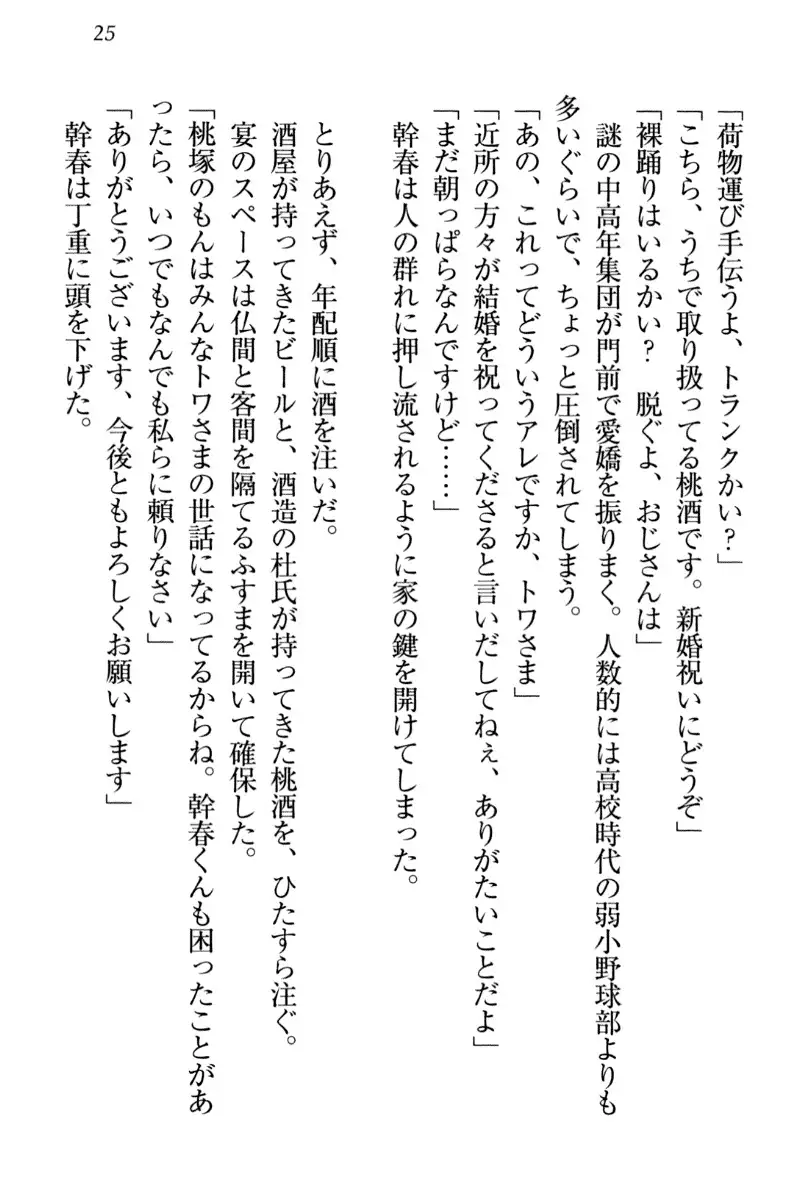 25
「荷物運び手伝うよ、トランクかい？」
「こちら、うちで取り扱ってる桃酒です。新婚祝いにどうぞ」
「裸踊りはいるかい？　脱ぐよ、おじさんは」
　謎の中高年集団が門前で愛嬌を振りまく。人数的には高校時代の弱小野球部よりも
多いぐらいで、ちょっと圧倒されてしまう。
「あの、これってどういうアレですか、トワさま」
「近所の方々が結婚を祝ってくださると言いだしてねぇ、ありがたいことだよ」
「まだ朝っぱらなんですけど……」
　幹春は人の群れに押し流されるように家の鍵を開けてしまった。
　とりあえず、年配順に酒を注いだ。
　酒屋が持ってきたビールと、酒造の杜氏が持ってきた桃酒を、ひたすら注ぐ。
　宴のスペースは仏間と客間を隔てるふすまを開いて確保した。
「桃塚のもんはみんなトワさまの世話になってるからね。幹春くんも困ったことがあ
ったら、いつでもなんでも私らに頼りなさい」
「ありがとうございます、今後ともよろしくお願いします」
　幹春は丁重に頭を下げた。